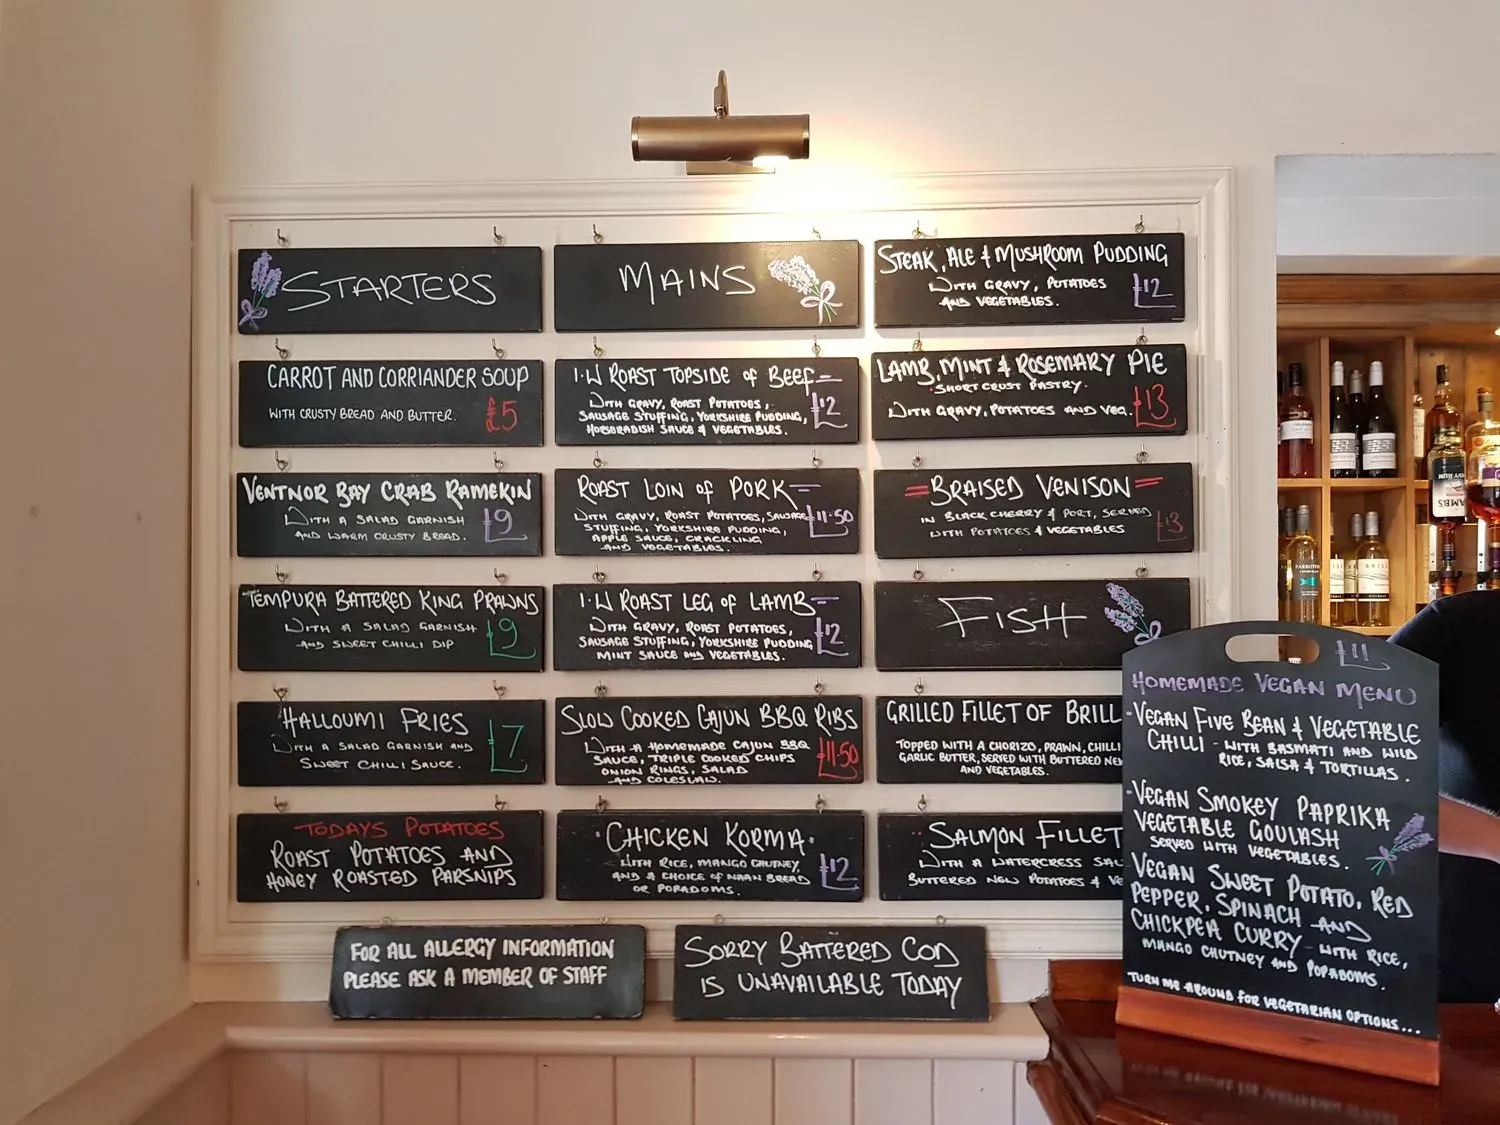 STARTERS
CARROT AND CORRIANDER SOUP
WITH CRUSTY BREAD AND BUTTER. £5
VENTNOR BAY CRAB RAMEKIN
WITH A SALAD GARNISH £9
AND WARM CRUSTY BREAD.
TEMPURA BATTERED KING PRAWNS
WITH A SALAD GARNISH £9
AND SWEET CHILLI DIP
HALLOUMI FRIES
WITH A SALAD GARNISH AND £7
SWEET CHILLI SAUCE.
TODAYS POTATOES
ROAST POTATOES AND
HONEY ROASTED PARSNIPS
MAINS
I.W ROAST TOPSIDE OF BEEF
WITH GRAVY, ROAST POTATOES, £12
SAUSAGE STUFFING, YORKSHIRE PUDDING,
HORSERADISH SAUCE & VEGETABLES.
ROAST LOIN OF PORK
WITH GRAVY, ROAST POTATOES, SAUSAGE £11.50
STUFFING, YORKSHIRE PUDDING,
APPLE SAUCE, CRACKLING
AND VEGETABLES.
I.W ROAST LEG OF LAMB
WITH GRAVY, ROAST POTATOES, £12
SAUSAGE STUFFING, YORKSHIRE PUDDING
MINT SAUCE AND VEGETABLES.
SLOW COOKED CAJUN BBQ RIBS
WITH A HOMEMADE CAJUN BBQ £11.50
SAUCE, TRIPLE COOKED CHIPS
ONION RINGS, SALAD
AND COLESLAW.
CHICKEN KORMA
WITH RICE, MANGO CHUTNEY, £12
AND A CHOICE OF NAAN BREAD
OR POPADOMS.
STEAK, ALE & MUSHROOM PUDDING
WITH GRAVY, POTATOES £12
AND VEGETABLES.
LAMB, MINT & ROSEMARY PIE
SHORT CRUST PASTRY. £13
WITH GRAVY, POTATOES AND VEG.
BRAISED VENISON
IN BLACK CHERRY & PORT, SERVED £13
WITH POTATOES & VEGETABLES
FISH
GRILLED FILLET OF BRILL
TOPPED WITH A CHORIZO, PRAWN, CHILLI
GARLIC BUTTER, SERVED WITH BUTTERED NEW
AND VEGETABLES.
SALMON FILLET
WITH A WATERCRESS
BUTTERED NEW POTATOES &
FOR ALL ALLERGY INFORMATION
PLEASE ASK A MEMBER OF STAFF
SORRY BATTERED COD
IS UNAVAILABLE TODAY
£11
HOMEMADE VEGAN MENU
-VEGAN FIVE BEAN & VEGETABLE
CHILLI - WITH BASMATI AND WILD
RICE, SALSA & TORTILLAS.
-VEGAN SMOKEY PAPRIKA
VEGETABLE GOULASH
SERVED WITH VEGETABLES.
-VEGAN SWEET POTATO, RED
PEPPER, SPINACH AND
CHICKPEA CURRY - WITH RICE,
MANGO CHUTNEY AND POPADOMS.
TURN ME AROUND FOR VEGETARIAN OPTIONS...